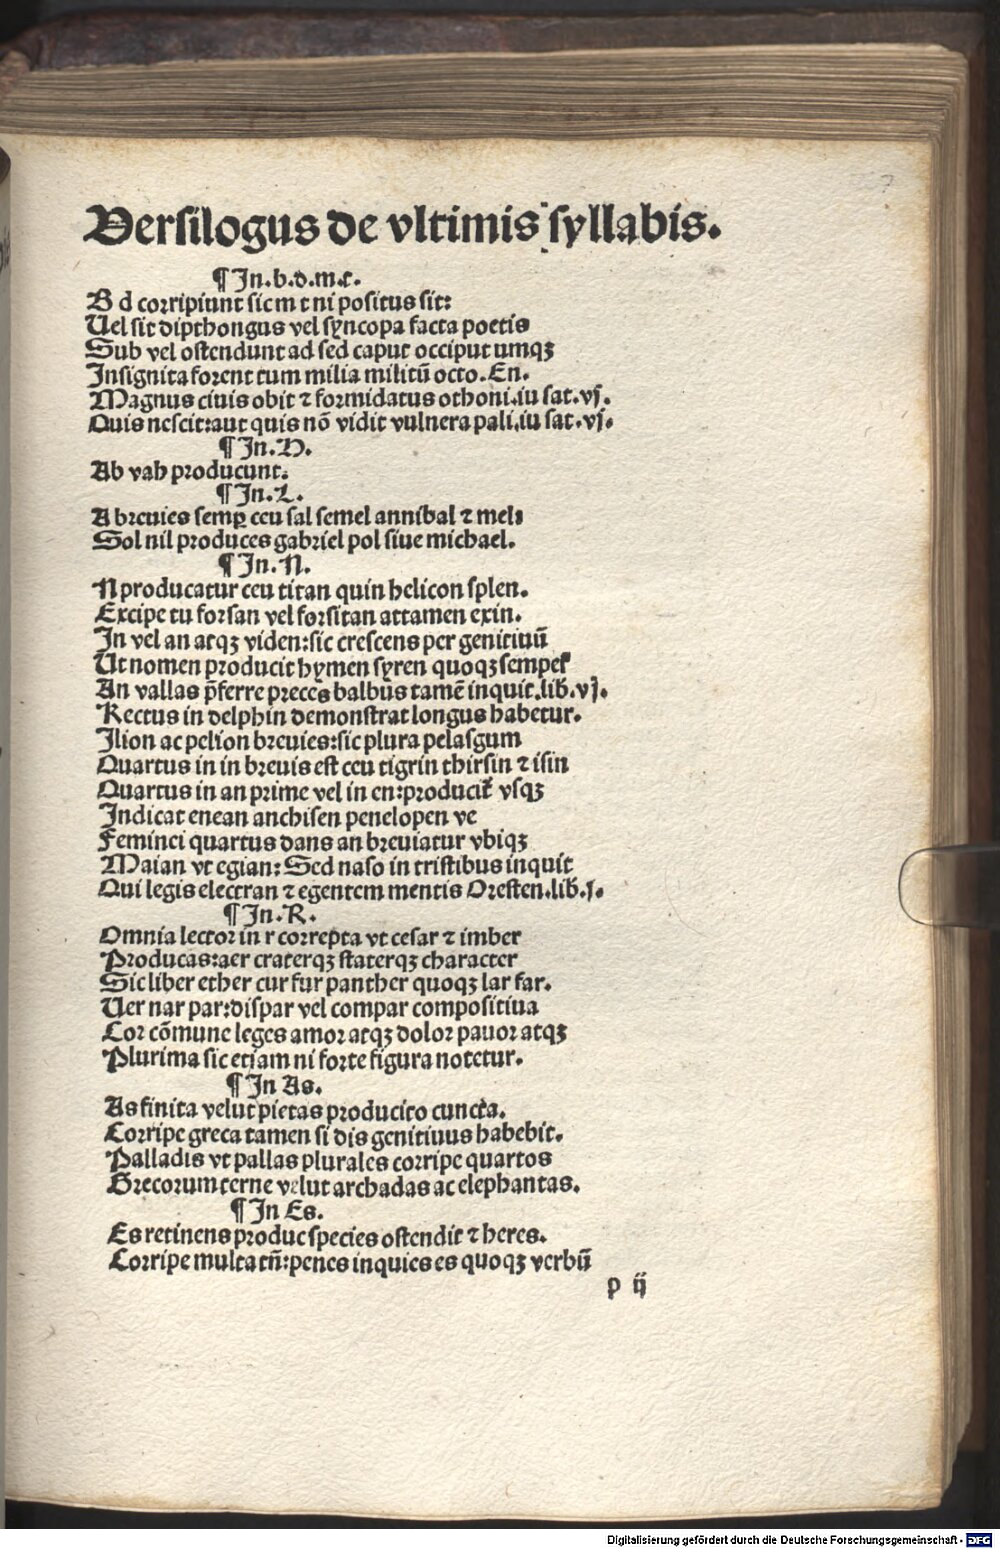 Versilogus de vltimis syllabis.
¶ In.b.d.m.c.
B d corripiunt sic m t ni positus sit:
Uel sit dipthongus vel syncopa facta poetis
Sub vel ostendunt ad sed caput occiput umqꝫ
Insignita forent tum milia militū octo.En.
Magnus ciuis obit ⁊ formidatus othoni.iu sat.vj.
Quis nescit:aut quis nō vidit vulnera pali.iu sat.vj.
¶ In.H.
Ah vah producunt.
¶ In.L.
A breuies semꝑ ceu sal semel annibal ⁊ mel:
Sol nil produces gabriel pol siue michael.
¶ In.N.
N producatur ceu titan quin helicon splen.
Excipe tu forsan vel forsitan attamen exin.
In vel an atqꝫ viden:sic crescens per genitiuū
Ut nomen producit hymen syren quoqꝫ semper
An vallas p̄ferre preces balbus tamē inquit.lib.vj.
Rectus in delphin demonstrat longus habetur.
Ilion ac pelion breuies:sic plura pelasgum
Quartus in in breuis est ceu tigrin thirsin ⁊ isin
Quartus in an prime vel in en:producit᷑ vsqꝫ
Indicat enean anchisen penelopen ve
Feminei quartus dans an breuiatur vbiqꝫ
Maian vt egian: Sed naso in tristibus inquit
Qui legis electran ⁊ egentem mentis Oresten.lib.j.
¶ In.R.
Omnia lector in r correpta vt cesar ⁊ imber
Producas:aer craterqꝫ staterqꝫ character
Sic liber ether cur fur panther quoqꝫ lar far.
Uer nar par:dispar vel compar compositiua
Cor cōmune leges amor atqꝫ dolor pauor atqꝫ
Plurima sic etiam ni forte figura notetur.
¶ In As.
As finita velut pietas producito cuncta.
Corripe greca tamen si dis genitiuus habebit.
Palladis vt pallas plurales corripe quartos
Grecorum cerne velut archadas ac elephantas.
¶ In Es.
Es retinens produc species ostendit ⁊ heres.
Corripe multa tn̄:penes inquies es quoqꝫ verbū
p ij
Digitalisierung gefördert durch die Deutsche Forschungsgemeinschaft - DFG